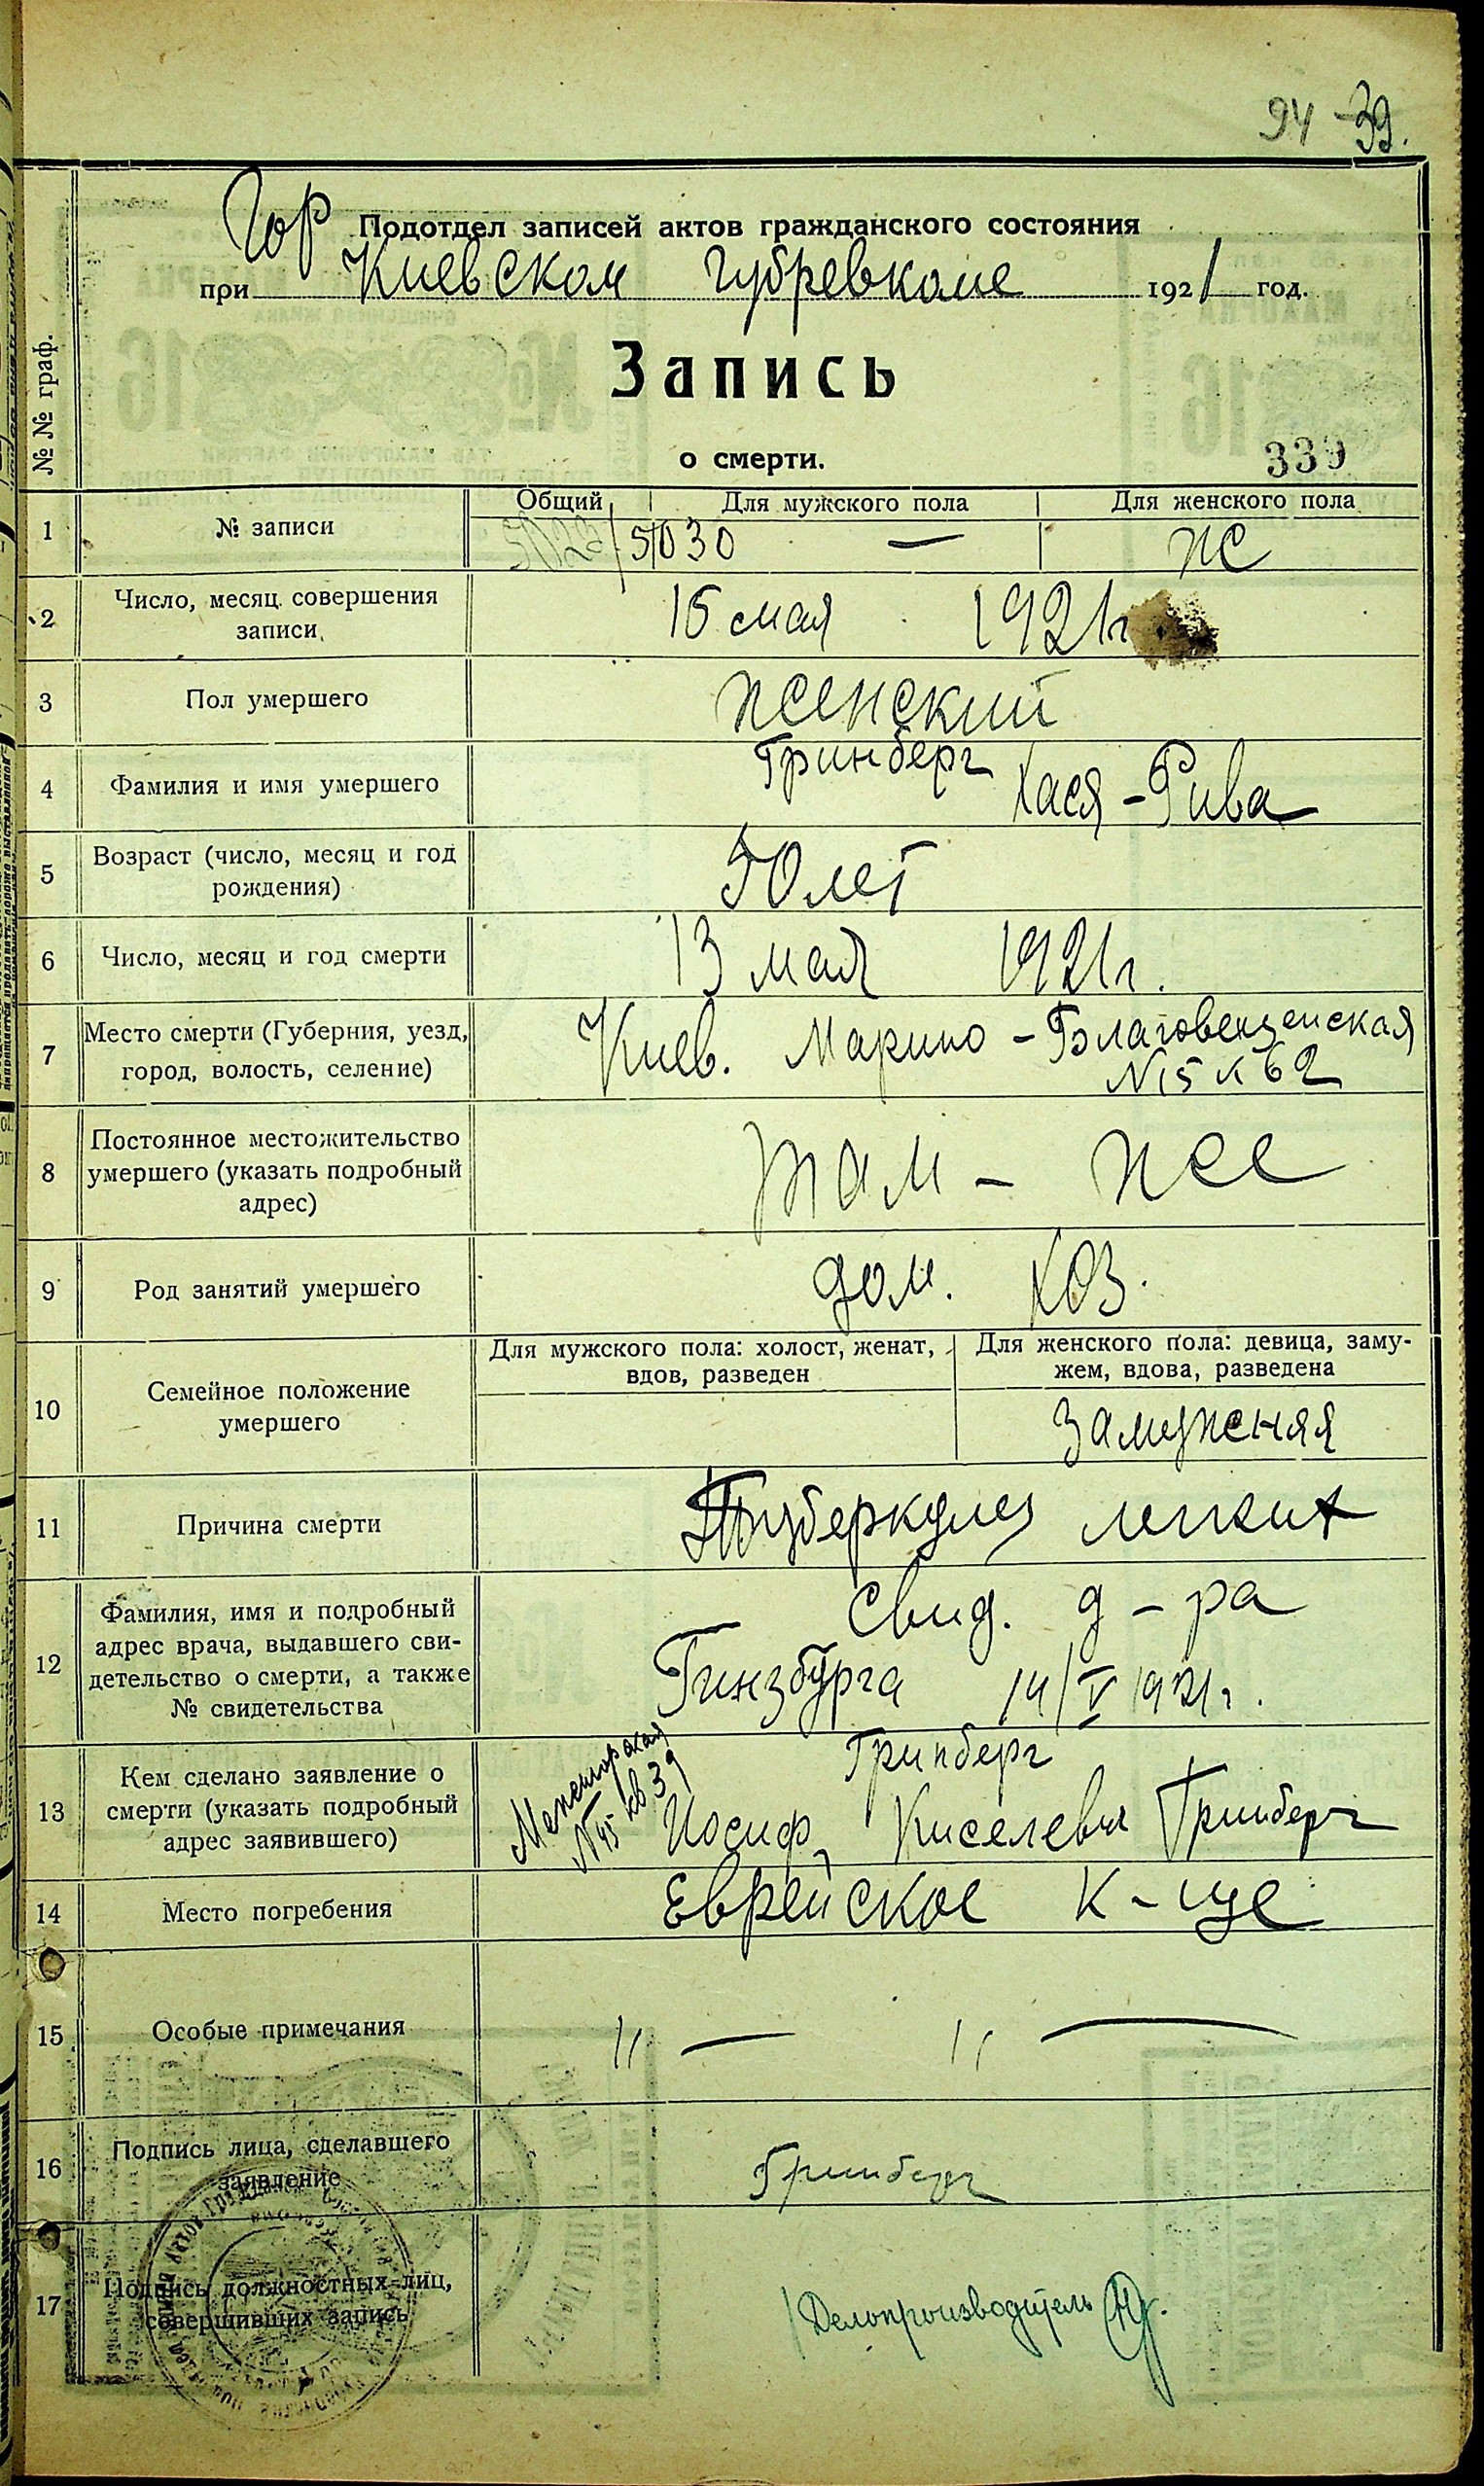 94 39.
Гор Подотдел записей актов гражданского состояния
при Киевском Губревкоме 1921 год.
Запись
о смерти.
339
№ № граф.
Общий Для мужского пола Для женского пола
1 № записи 5030 — же
2 Число, месяц совершения
записи
15 мая 1921г
3 Пол умершего женский
4 Фамилия и имя умершего Гринберг Хася-Рива
5 Возраст (число, месяц и год
рождения)
50 лет
6 Число, месяц и год смерти 13 мая 1921г.
7 Место смерти (Губерния, уезд,
город, волость, селение)
Киев. Марино-Благовещенская
N 15 к 62
8 Постоянное местожительство
умершего (указать подробный
адрес)
там - же
9 Род занятий умершего дом. хоз.
10 Семейное положение
умершего
Для мужского пола: холост, женат,
вдов, разведен
Для женского пола: девица, заму-
жем, вдова, разведена
Замужняя
11 Причина смерти Туберкулез легких
12 Фамилия, имя и подробный
адрес врача, выдавшего сви-
детельство о смерти, а также
№ свидетельства
Свид. д-ра
Гинзбурга 14/V 1921г.
13 Кем сделано заявление о
смерти (указать подробный
адрес заявившего)
N 45 кв 39
Гринберг
Иосиф Киселевич Гринберг
14 Место погребения Еврейское к-ще
15 Особые примечания " — " —
16 Подпись лица, сделавшего
заявление
Гринберг
17 Подпись должностных лиц,
совершивших запись
Делопроизводитель